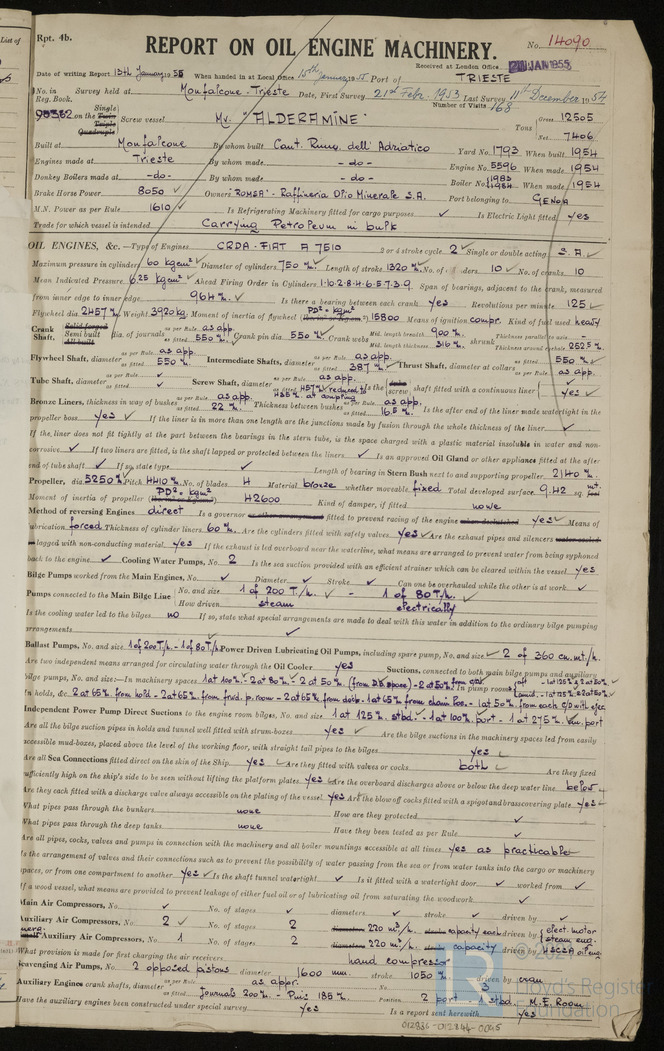 Rpt. 4b.
REPORT ON OIL ENGINE MACHINERY.
No. 14090
Received at London Office 20 JAN 1955
Date of writing Report 13th January 1955 When handed in at Local Office 15th January 1955 Port of TRIESTE
No. in Reg. Book. Survey held at Monfalcone - Trieste Date, First Survey 21st Febr. 1953 Last Survey 11th December 1954
Number of Visits 168
on the Single Screw vessel M.V. "ALDERAMINE" Tons Gross 12505 Net 7406
Built at Monfalcone By whom built Cant. Riun. dell' Adriatico Yard No. 1793 When built 1954
Engines made at Trieste By whom made -do- Engine No. 5596 When made 1954
Donkey Boilers made at -do- By whom made -do- Boiler No. 11983 11984 When made 1954
Brake Horse Power 8050 Owners "ROMSA" - Raffineria Olio Minerale S.A. Port belonging to GENOA
M.N. Power as per Rule 1610 Is Refrigerating Machinery fitted for cargo purposes ✓ Is Electric Light fitted yes
Trade for which vessel is intended Carrying Petroleum in bulk
OIL ENGINES, &c.—Type of Engines CRDA-FIAT A 7510 2 or 4 stroke cycle 2 Single or double acting S.A.
Maximum pressure in cylinders 60 kg/cm² Diameter of cylinders 750 m/m. Length of stroke 1320 m/m No. of cylinders 10 No. of cranks 10
Mean Indicated Pressure 6.25 kg/cm² Ahead Firing Order in Cylinders 1-10-2-8-4-6-5-7-3-9. Span of bearings, adjacent to the crank, measured
from inner edge to inner edge 964 m/m. Is there a bearing between each crank yes Revolutions per minute 125
Flywheel dia. 2457 m/m Weight 3920 kg Moment of inertia of flywheel PD² = kg m² 15800 Means of ignition compr. Kind of fuel used heavy
Crank Shaft, Solid forged Semi built All built dia. of journals as per Rule as app. as fitted 550 m/m Crank pin dia. 550 m/m. Crank webs Mid. length breadth 900 m/m. Mid. length thickness 316 m/m. shrunk Thickness parallel to axis - Thickness around eyehole 262.5 m/m.
Flywheel Shaft, diameter as per Rule as app. as fitted 550 m/m. Intermediate Shafts, diameter as per Rule as app. as fitted 387 m/m Thrust Shaft, diameter at collars as fitted 550 m/m as per Rule as app.
Tube Shaft, diameter as per Rule as fitted ✓ Screw Shaft, diameter as per Rule as app. as fitted 457 m/m reduced to 435 m/m at coupling Is the tube screw shaft fitted with a continuous liner yes
Bronze Liners, thickness in way of bushes as per Rule as app. as fitted 22 m/m. Thickness between bushes as per Rule as app. as fitted 16.5 m/m. Is the after end of the liner made watertight in the
propeller boss yes If the liner is in more than one length are the junctions made by fusion through the whole thickness of the liner ✓
If the liner does not fit tightly at the part between the bearings in the stern tube, is the space charged with a plastic material insoluble in water and non-
corrosive ✓ If two liners are fitted, is the shaft lapped or protected between the liners ✓ Is an approved Oil Gland or other appliance fitted at the after
end of tube shaft ✓ If so, state type ✓ Length of bearing in Stern Bush next to and supporting propeller 2140 m/m.
Propeller, dia. 5250 m/m Pitch 4410 m/m. No. of blades 4 Material bronze whether moveable fixed Total developed surface 9.42 sq. mt.
Moment of inertia of propeller PD² = kg m² 42600 Kind of damper, if fitted none
Method of reversing Engines direct Is a governor fitted to prevent racing of the engine yes Means of
lubrication forced Thickness of cylinder liners 60 m/m. Are the cylinders fitted with safety valves yes Are the exhaust pipes and silencers
lagged with non-conducting material yes If the exhaust is led overboard near the waterline, what means are arranged to prevent water from being syphoned
back to the engine ✓ Cooling Water Pumps, No. 2 Is the sea suction provided with an efficient strainer which can be cleared within the vessel yes
Bilge Pumps worked from the Main Engines, No. ✓ Diameter ✓ Stroke ✓ Can one be overhauled while the other is at work ✓
Pumps connected to the Main Bilge Line No. and size 1 of 200 T/h. - 1 of 80 T/h.
How driven steam electrically
Is the cooling water led to the bilges no If so, state what special arrangements are made to deal with this water in addition to the ordinary bilge pumping
arrangements ✓
Ballast Pumps, No. and size 1 of 200 T/h. - 1 of 80 T/h. Power Driven Lubricating Oil Pumps, including spare pump, No. and size 2 of 360 cu.mt/h.
Are two independent means arranged for circulating water through the Oil Cooler yes Suctions, connected to both main bilge pumps and auxiliary
bilge pumps, No. and size:—In machinery spaces 1 at 100 m/m - 2 at 80 m/m - 2 at 50 m/m (from D.B. space) - 2 at 50 m/m In pump room
In holds, &c. 2 at 65 m/m. from hold - 2 at 65 m/m. from frwd. p. room
Independent Power Pump Direct Suctions to the engine room bilges, No. and size 1 at 125 m/m. stbd. - 1 at 100 m/m. port - 1 at 275 m/m. port
Are all the bilge suction pipes in holds and tunnel well fitted with strum-boxes yes Are the bilge suctions in the machinery spaces led from easily
accessible mud-boxes, placed above the level of the working floor, with straight tail pipes to the bilges yes
Are all Sea Connections fitted direct on the skin of the Ship yes Are they fitted with valves or cocks both Are they fixed
sufficiently high on the ship's side to be seen without lifting the platform plates yes Are the overboard discharges above or below the deep water line below
Are they each fitted with a discharge valve always accessible on the plating of the vessel yes Are the blow off cocks fitted with a spigot and brass covering plate yes
What pipes pass through the bunkers none How are they protected ✓
What pipes pass through the deep tanks none Have they been tested as per Rule ✓
Are all pipes, cocks, valves and pumps in connection with the machinery and all boiler mountings accessible at all times yes as practicable
Is the arrangement of valves and their connections such as to prevent the possibility of water passing from the sea or from water tanks into the cargo or machinery
spaces, or from one compartment to another yes Is the shaft tunnel watertight ✓ Is it fitted with a watertight door ✓ worked from ✓
If a wood vessel, what means are provided to prevent leakage of either fuel oil or of lubricating oil from saturating the woodwork ✓
Main Air Compressors, No. ✓ No. of stages ✓ diameters ✓ stroke ✓ driven by ✓
Auxiliary Air Compressors, No. 2 No. of stages 2 diameters 220 m³/h. stroke capacity each driven by elect. motor steam eng.
Small Auxiliary Air Compressors, No. 1 No. of stages 2 diameters 220 m³/h. stroke capacity driven by
What provision is made for first charging the air receivers hand compressor
Scavenging Air Pumps, No. 2 opposed pistons diameter 1600 mm. stroke 1050 driven by cran
Auxiliary Engines crank shafts, diameter as per Rule as appr. as fitted Journals 200 m/m. - Pins 185 m/m. No. 3 Position 2 port 1 stbd. M.E. Room
Have the auxiliary engines been constructed under special survey yes Is a report sent herewith yes
© 2021 Lloyd's Register Foundation
012836-012844-0045